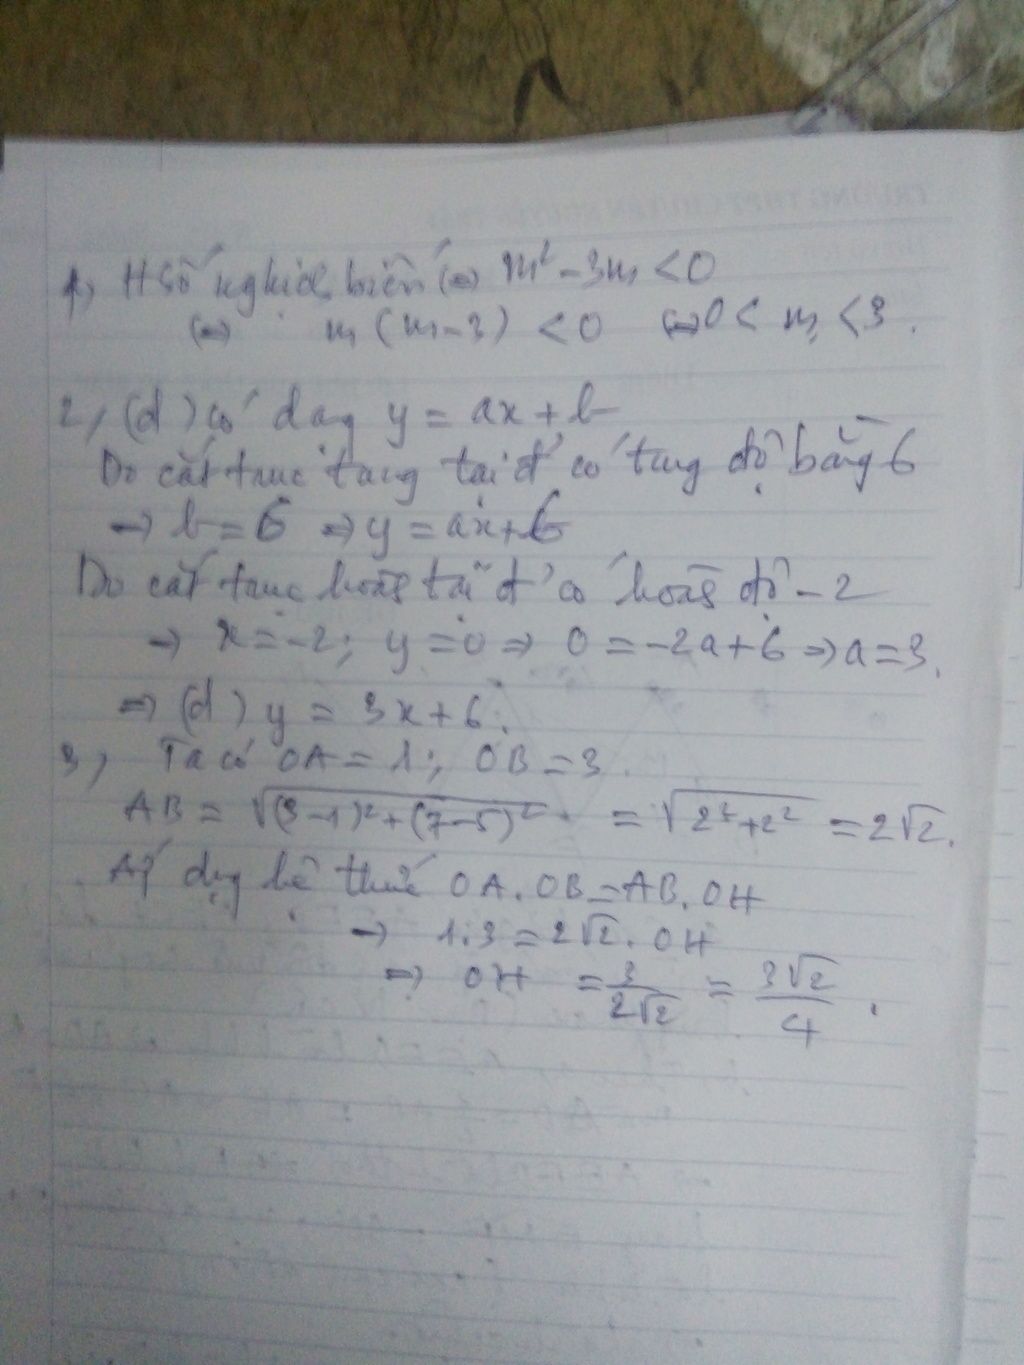 1, H số nghịch biến (=) m² - 3m < 0
(=) m (m-3) < 0 (=) 0 < m < 3.
2, (d) có dạng y = ax + b
Do cắt trục tung tại đ' có tung độ bằng 6
→ b = 6 => y = ax + 6
Do cắt trục hoành tại đ' có hoành độ -2
→ x = -2; y = 0 => 0 = -2a + 6 => a = 3.
=> (d) y = 3x + 6.
3, Ta có OA = 1; OB = 3.
AB = √(3-1)² + (7-5)² = √2² + 2² = 2√2.
Áp dụng hệ thức OA.OB = AB.OH
→ 1.3 = 2√2 . OH
=> OH = 3/2√2 = 3√2/4.